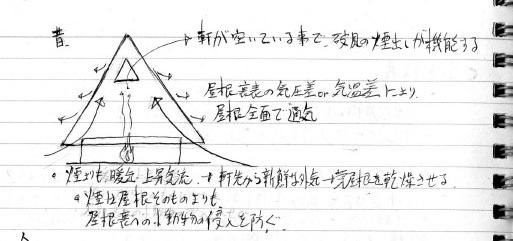 昔.
→軒が空いている事で、破風の煙出しが機能する
屋根裏表の気圧差or気温差により、
屋根全面で通気
・煙よりも暖気上昇気流. →軒先から新鮮な外気→茅屋根を乾燥させる.
・煙は屋根そのものよりも
屋根裏への小動物の侵入を防ぐ.